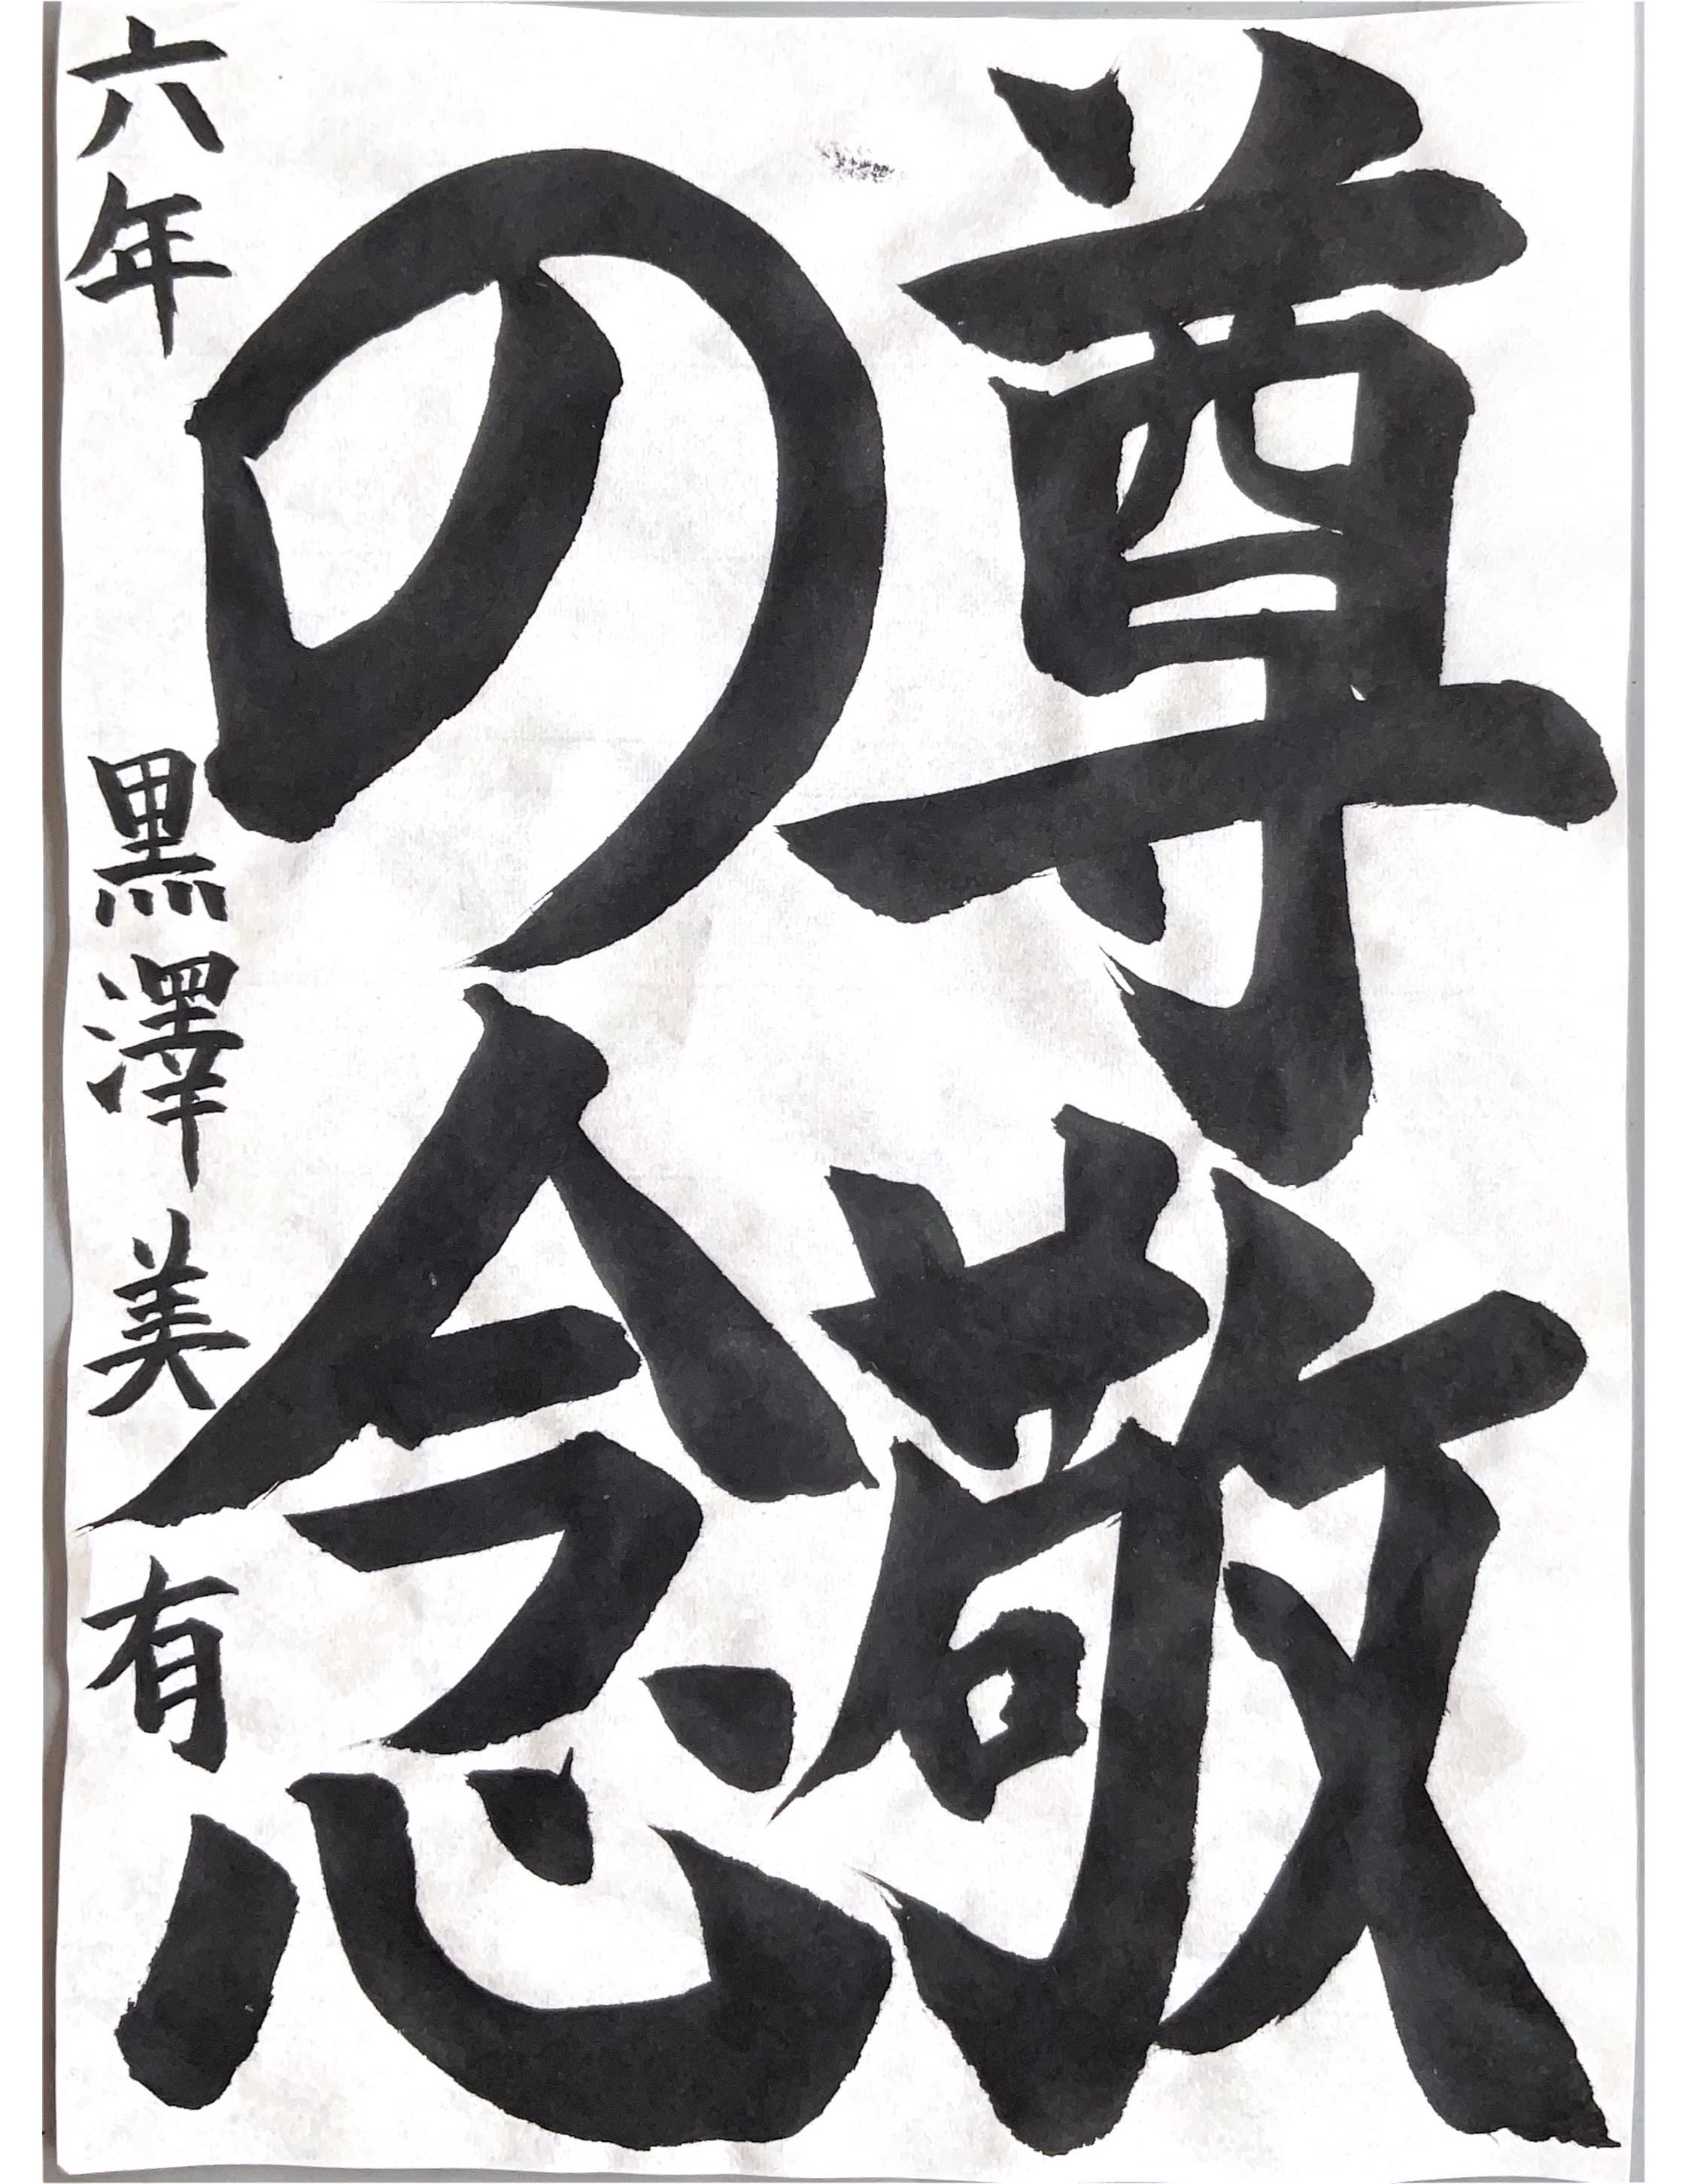 尊敬
の念
六年 黒澤美有